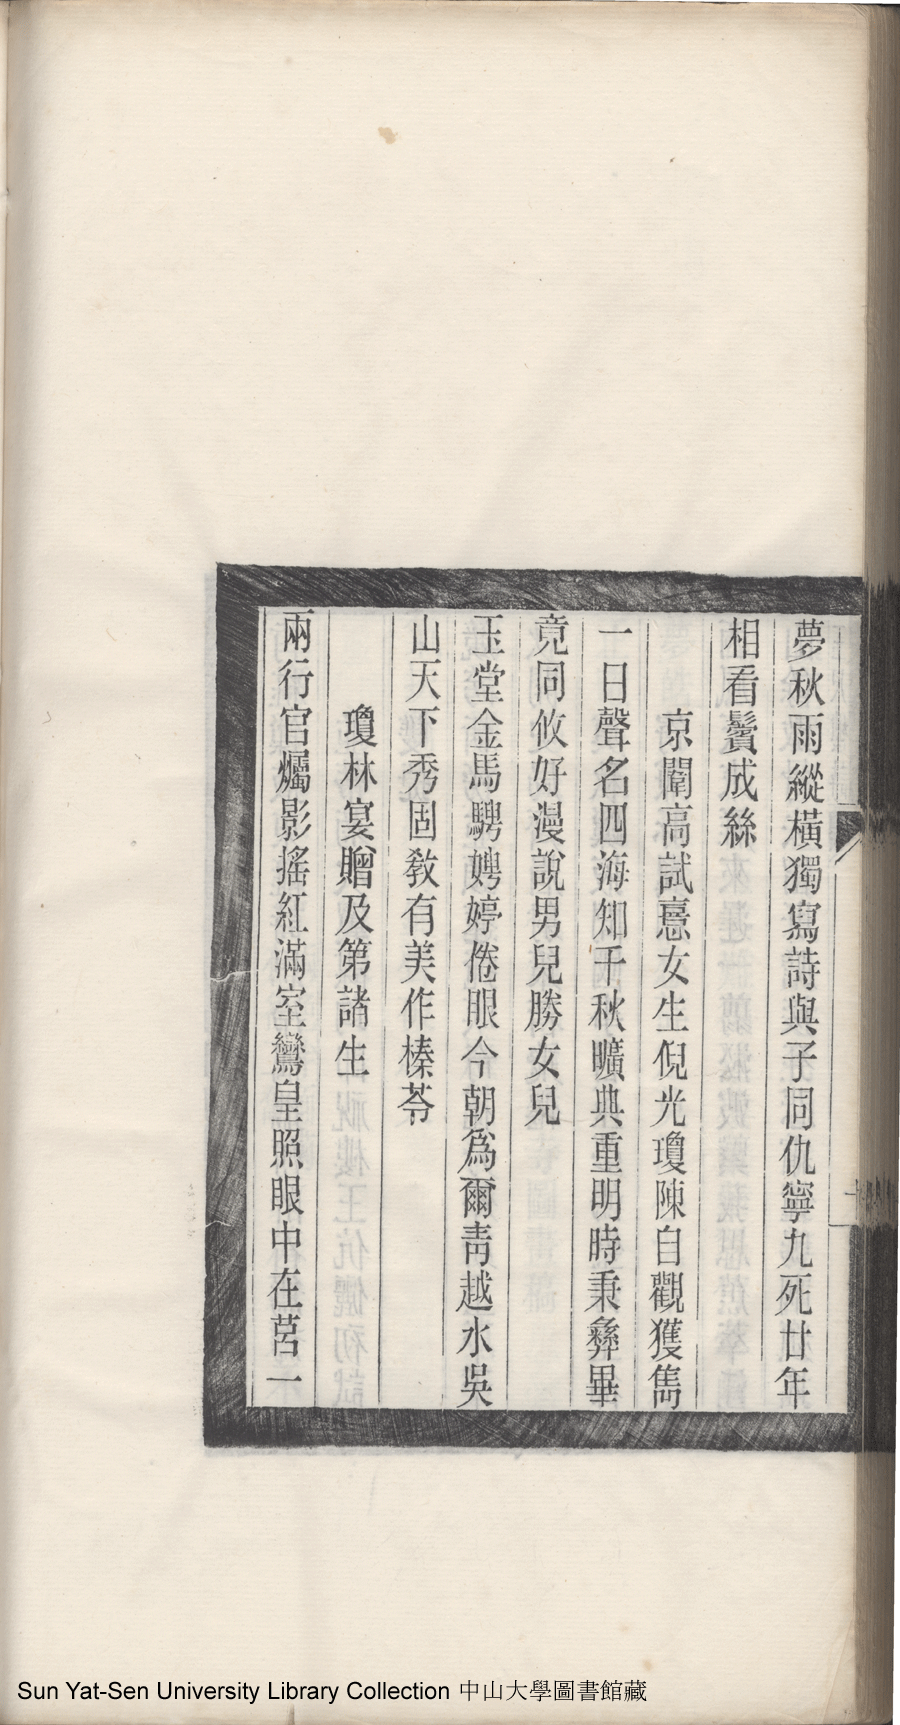 夢秋雨縱橫獨寫詩與子同仇寧九死廿年
相看鬢成絲
京闈高試憙女生倪光瓊陳自觀獲雋
一日聲名四海知千秋曠典重明時秉彝畢
竟同攸好漫說男兒勝女兒
玉堂金馬騁娉婷倦眼今朝爲爾靑越水吳
山天下秀固敎有美作榛苓
瓊林宴贈及第諸生
兩行官爥影搖紅滿室鸞皇照眼中在莒一
Sun Yat-Sen University Library Collection 中山大學圖書館藏